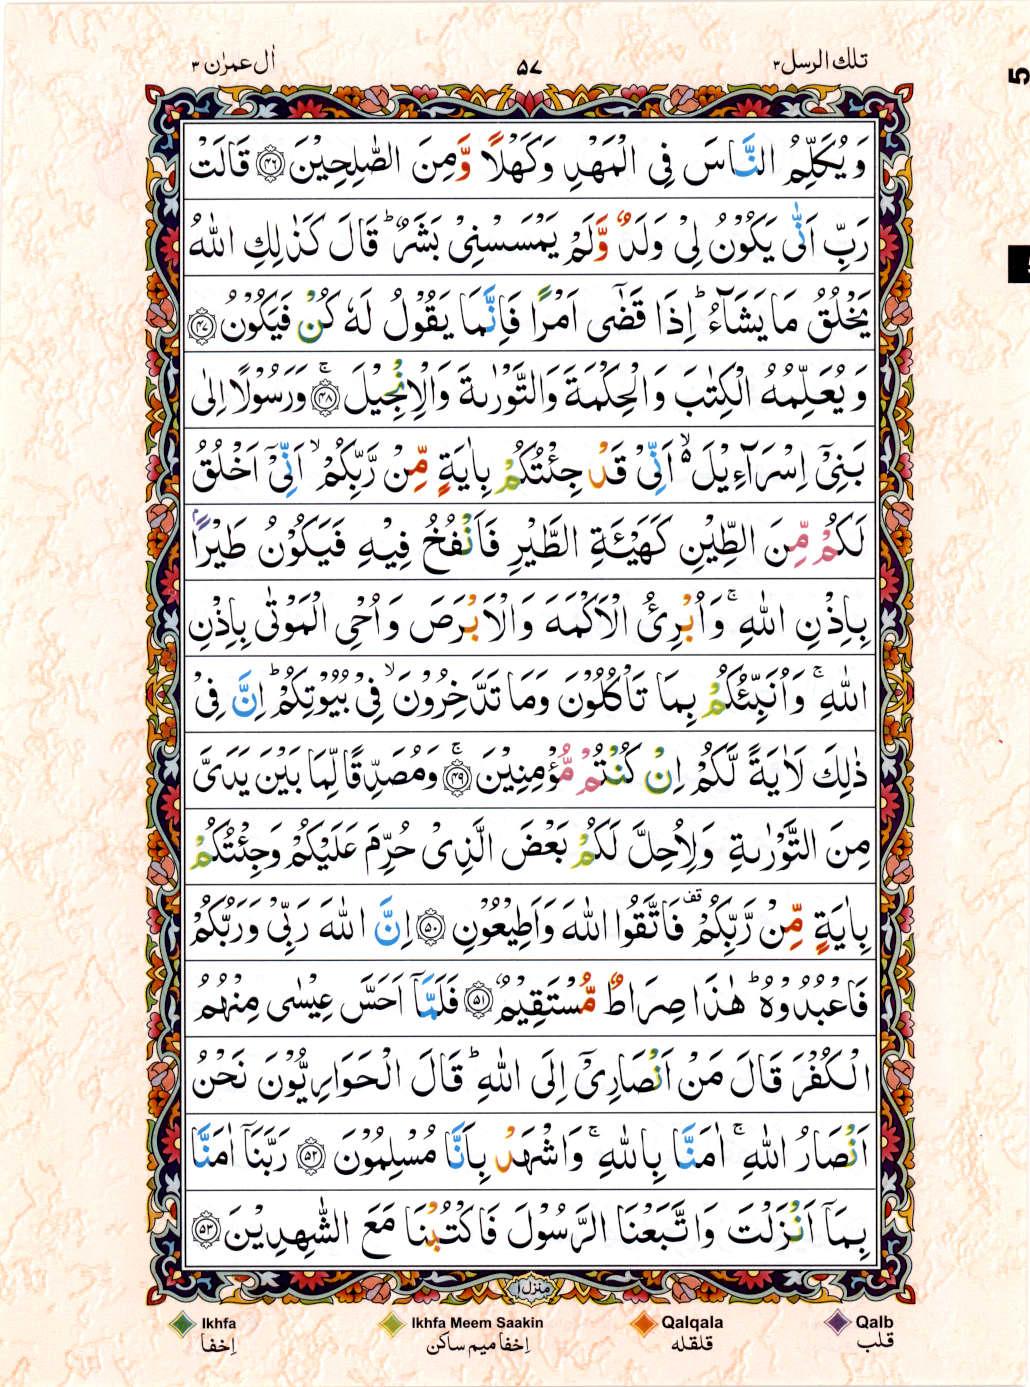 تلك الرسل ۳
۵۷
اٰل عمرٰن ۳
5
وَ یُكَلِّمُ النَّاسَ فِی الْمَهْدِ وَ كَهْلًا وَّ مِنَ الصّٰلِحِیْنَ ۴۶ قَالَتْ
رَبِّ اَنّٰى یَكُوْنُ لِیْ وَلَدٌ وَّ لَمْ یَمْسَسْنِیْ بَشَرٌؕ قَالَ كَذٰلِكِ اللّٰهُ
یَخْلُقُ مَا یَشَآءُؕ اِذَا قَضٰۤى اَمْرًا فَاِنَّمَا یَقُوْلُ لَهٗ كُنْ فَیَكُوْنُ ۴۷
وَ یُعَلِّمُهُ الْكِتٰبَ وَ الْحِكْمَةَ وَ التَّوْرٰىةَ وَ الْاِنْجِیْلَ ۴۸ۚ وَ رَسُوْلًا اِلٰى
بَنِیْۤ اِسْرَآءِیْلَ ۙ۬ اَنِّیْ قَدْ جِئْتُكُمْ بِاٰیَةٍ مِّنْ رَّبِّكُمْۙ اَنِّیْۤ اَخْلُقُ
لَكُمْ مِّنَ الطِّیْنِ كَهَیْـَٔةِ الطَّیْرِ فَاَنْفُخُ فِیْهِ فَیَكُوْنُ طَیْرًۢا
بِاِذْنِ اللّٰهِۚ وَ اُبْرِئُ الْاَكْمَهَ وَ الْاَبْرَصَ وَ اُحْیِ الْمَوْتٰى بِاِذْنِ
اللّٰهِۚ وَ اُنَبِّئُكُمْ بِمَا تَاْكُلُوْنَ وَ مَا تَدَّخِرُوْنَۙ فِیْ بُیُوْتِكُمْؕ اِنَّ فِیْ
ذٰلِكَ لَاٰیَةً لَّكُمْ اِنْ كُنْتُمْ مُّؤْمِنِیْنَ ۴۹ۚ وَ مُصَدِّقًا لِّمَا بَیْنَ یَدَیَّ
مِنَ التَّوْرٰىةِ وَ لِاُحِلَّ لَكُمْ بَعْضَ الَّذِیْ حُرِّمَ عَلَیْكُمْ وَ جِئْتُكُمْ
بِاٰیَةٍ مِّنْ رَّبِّكُمْ قف فَاتَّقُوا اللّٰهَ وَ اَطِیْعُوْنِ ۵۰ اِنَّ اللّٰهَ رَبِّیْ وَ رَبُّكُمْ
فَاعْبُدُوْهُؕ هٰذَا صِرَاطٌ مُّسْتَقِیْمٌ ۵۱ فَلَمَّاۤ اَحَسَّ عِیْسٰى مِنْهُمُ
الْكُفْرَ قَالَ مَنْ اَنْصَارِیْۤ اِلَى اللّٰهِؕ قَالَ الْحَوَارِیُّوْنَ نَحْنُ
اَنْصَارُ اللّٰهِۚ اٰمَنَّا بِاللّٰهِۚ وَ اشْهَدْ بِاَنَّا مُسْلِمُوْنَ ۵۲ رَبَّنَاۤ اٰمَنَّا
بِمَاۤ اَنْزَلْتَ وَ اتَّبَعْنَا الرَّسُوْلَ فَاكْتُبْنَا مَعَ الشّٰهِدِیْنَ ۵۳
منزل ۱
Ikhfa
Ikhfa Meem Saakin
Qalqala
Qalb
اِخفا
اِخفا میم ساکن
قلقلہ
قلب